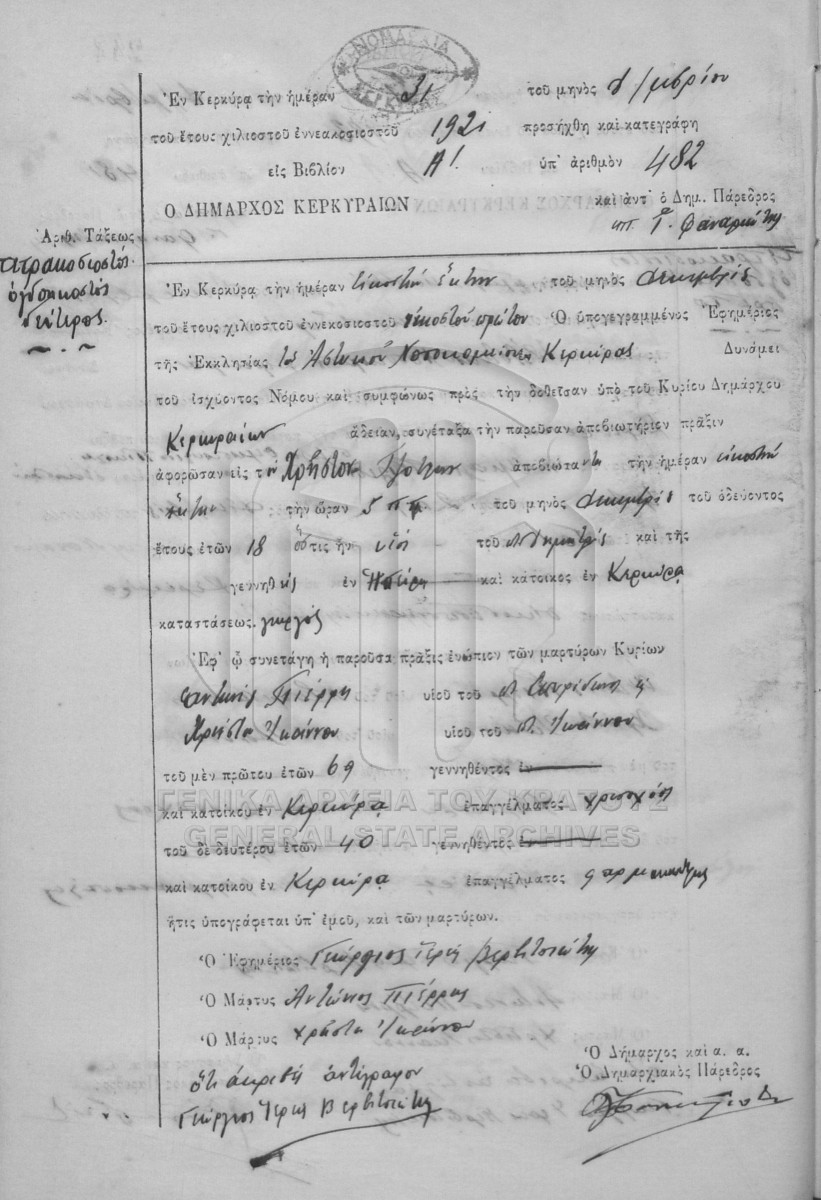 ΝΟΜΑΡΧΙΑ
Ἐν Κερκύρᾳ τὴν ἡμέραν 31 τοῦ μηνὸς
τοῦ ἔτους χιλιοστοῦ ἐννεακοσιοστοῦ 1921 προσήχθη καὶ κατεγράφη
εἰς Βιβλίον Α! ὑπ' ἀριθμὸν 482
Ο ΔΗΜΑΡΧΟΣ ΚΕΡΚΥΡΑΙΩΝ καὶ ἀντ' ὁ Δημ. Πάρεδρος
Ἀριθ. Τάξεως
τετρακοσιοστός
ὀγδοηκοστός
δεύτερος.
Ἐν Κερκύρᾳ τὴν ἡμέραν εἰκοστὴν ἕκτην τοῦ μηνὸς Δεκεμβρίου
τοῦ ἔτους χιλιοστοῦ ἐννεκοσιοστοῦ εἰκοστοῦ πρώτου Ὁ ὑπογεγραμμένος Ἐφημέριος
τῆς Ἐκκλητίας τοῦ Ἀστικοῦ Νοσοκομείου Κερκύρας Δυνάμει
τοῦ ἰσχύοντος Νόμου καὶ συμφώνως πρὸς τὴν δοθεῖσαν ὑπὸ τοῦ Κυρίου Δημάρχου
Κερκυραίων ἄδειαν, συνέταξα τὴν παροῦσαν ἀποβιωτήριον πρᾶξιν
ἀφορῶσαν εἰς τὸν Χρῆστον ἀποβιώταντα τὴν ἡμέραν εἰκοστὴν
ἕκτην τὴν ὥραν 5 π.μ. τοῦ μηνὸς Δεκεμβρίου τοῦ ὁδεύοντος
ἔτους ἐτῶν 18 ὅστις ἦν υἱὸς τοῦ Δημητρίου καὶ τῆς
γεννηθεὶς ἐν Ἠπείρῳ καὶ κάτοικος ἐν Κερκύρᾳ
καταστάσεως. γεωργός
Ἐφ' ᾧ συνετάγη ἡ παροῦσα πρᾶξις ἐνώπιον τῶν μαρτύρων Κυρίων
Ἀντώνης Πιέρρης υἱοῦ τοῦ π. Σπυρίδωνος ἢ
Χρῆστο Ἰωάννου υἱοῦ τοῦ π. Ἰωάννου
τοῦ μὲν πρώτου ἐτῶν 69 γεννηθέντος ἐν
καὶ κατοίκου ἐν Κερκύρᾳ ἐπαγγέλματος χρυσοχόος
ΓΕΝΙΚΑ ΑΡΧΕΙΑ ΤΟΥ ΚΡΑΤΟΥΣ
GENERAL STATE ARCHIVES
τοῦ δὲ δευτέρου ἐτῶν 40 γεννηθέντος ἐν
καὶ κατοίκου ἐν Κερκύρᾳ ἐπαγγέλματος
ἥτις ὑπογράφεται ὑπ' ἐμοῦ, καὶ τῶν μαρτύρων.
Ὁ Ἐφημέριος Γεώργιος Ἱερεὺς Βερβιτσιώτης
Ὁ Μάρτυς Ἀντώνιος Πιέρρης
Ὁ Μάρτυς Χρῆστο Ἰωάννου
Ὁ Δήμαρχος καὶ α. α.
Ὁ Δημαρχιακὸς Πάρεδρος
ὅτι ἀκριβὲς ἀντίγραφον
Γεώργιος Ἱερεὺς Βερβιτσιώτης